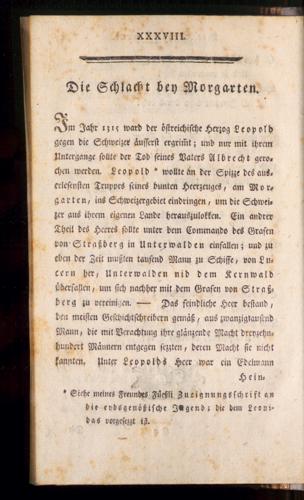 XXXVIII.
Die Schlacht bey Morgarten.
Im Jahr 1315 ward der östreichische Herzog Leopold
gegen die Schweizer äusserst ergrimt; und nur mit ihrem
Untergange sollte der Tod seines Vaters Albrecht gero-
chen werden. Leopold * wollte an der Spitze des aus-
erlesensten Truppes seines bunten Heerzeuges, am Mor-
garten, ins Schweizergebiet eindringen, um die Schwei-
zer aus ihrem eigenen Lande herauszulokken. Ein andrer
Theil des Heeres sollte unter dem Commando des Grafen
von Straßberg in Unterwalden einfallen; und zu
eben der Zeit mußten tausend Mann zu Schiffe, von Lu-
cern her, Unterwalden nid dem Kernwald
überfallen, um sich nachher mit dem Grafen von Straß-
berg zu vereinigen. — Das feindliche Heer bestand,
den meisten Geschichtschreibern gemäß, aus zwanzigtausend
Mann, die mit Verachtung ihre glänzende Macht dreyzehn-
hundert Männern entgegen sezten, deren Macht sie nicht
kannten. Unter Leopolds Heer war ein Edelmann
Hein-
* Siehe meines Freundes Füeßli Zueignungsschrift an
die eydsgenößische Jugend; die dem Leoni-
das vorgesezt ist.